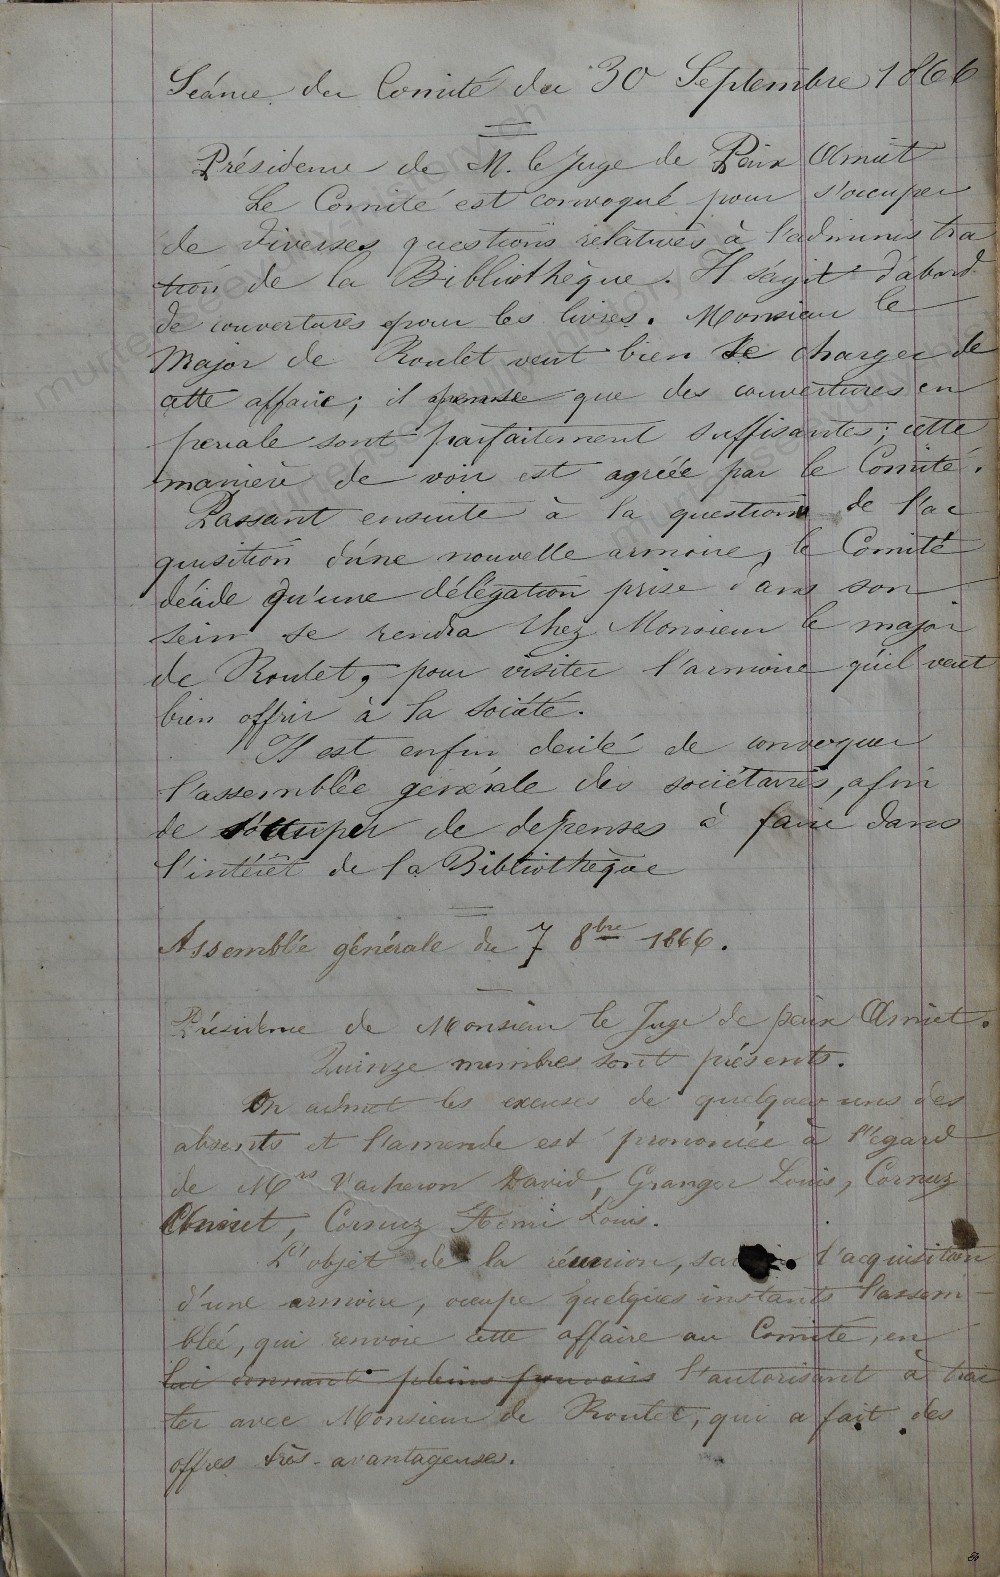 Séance du Comité du 30 Septembre 1866
Présidence de M. le Juge de Paix Amiet
Le Comité est convoqué pour s'occuper
de diverses questions relatives à l'administra
tion de la Bibliothèque. Il s'agit d'abord
de couvertures pour les livres. Monsieur le
Major de Roulet veut bien se charger de
cette affaire; il pense que des couvertures en
percale sont parfaitement suffisantes; cette
manière de voir est agréée par le Comité.
Passant ensuite à la question de l'ac
quisition d'une nouvelle armoire, le Comité
décide qu'une délégation prise dans son
sein se rendra chez Monsieur le major
de Roulet, pour visiter l'armoire qu'il veut
bien offrir à la Société.
Il est enfin decidé de convoquer
l'assemblée générale des sociétaires, afin
de s'occuper de depenses à faire dans
l'intérêt de la Bibliothèque
Assemblée générale du 7 8bre 1866.
Présidence de Monsieur le Juge de paix Amiet.
Quinze membres sont présents.
On admet les excuses de quelques uns des
absents et l'amende est prononcée à l'égard
de Mrs Vacheron David, Granger Louis, Cornuz
Amiet, Cornuz Henri Louis.
L'objet de la réunion, savoir l'acquisition
d'une armoire, occupe quelques instants l'assem-
blée, qui renvoie cette affaire au Comité, en
lui donnant pleins pouvoirs l'autorisant à trai
ter avec Monsieur de Roulet, qui a fait des
offres très-avantageuses.